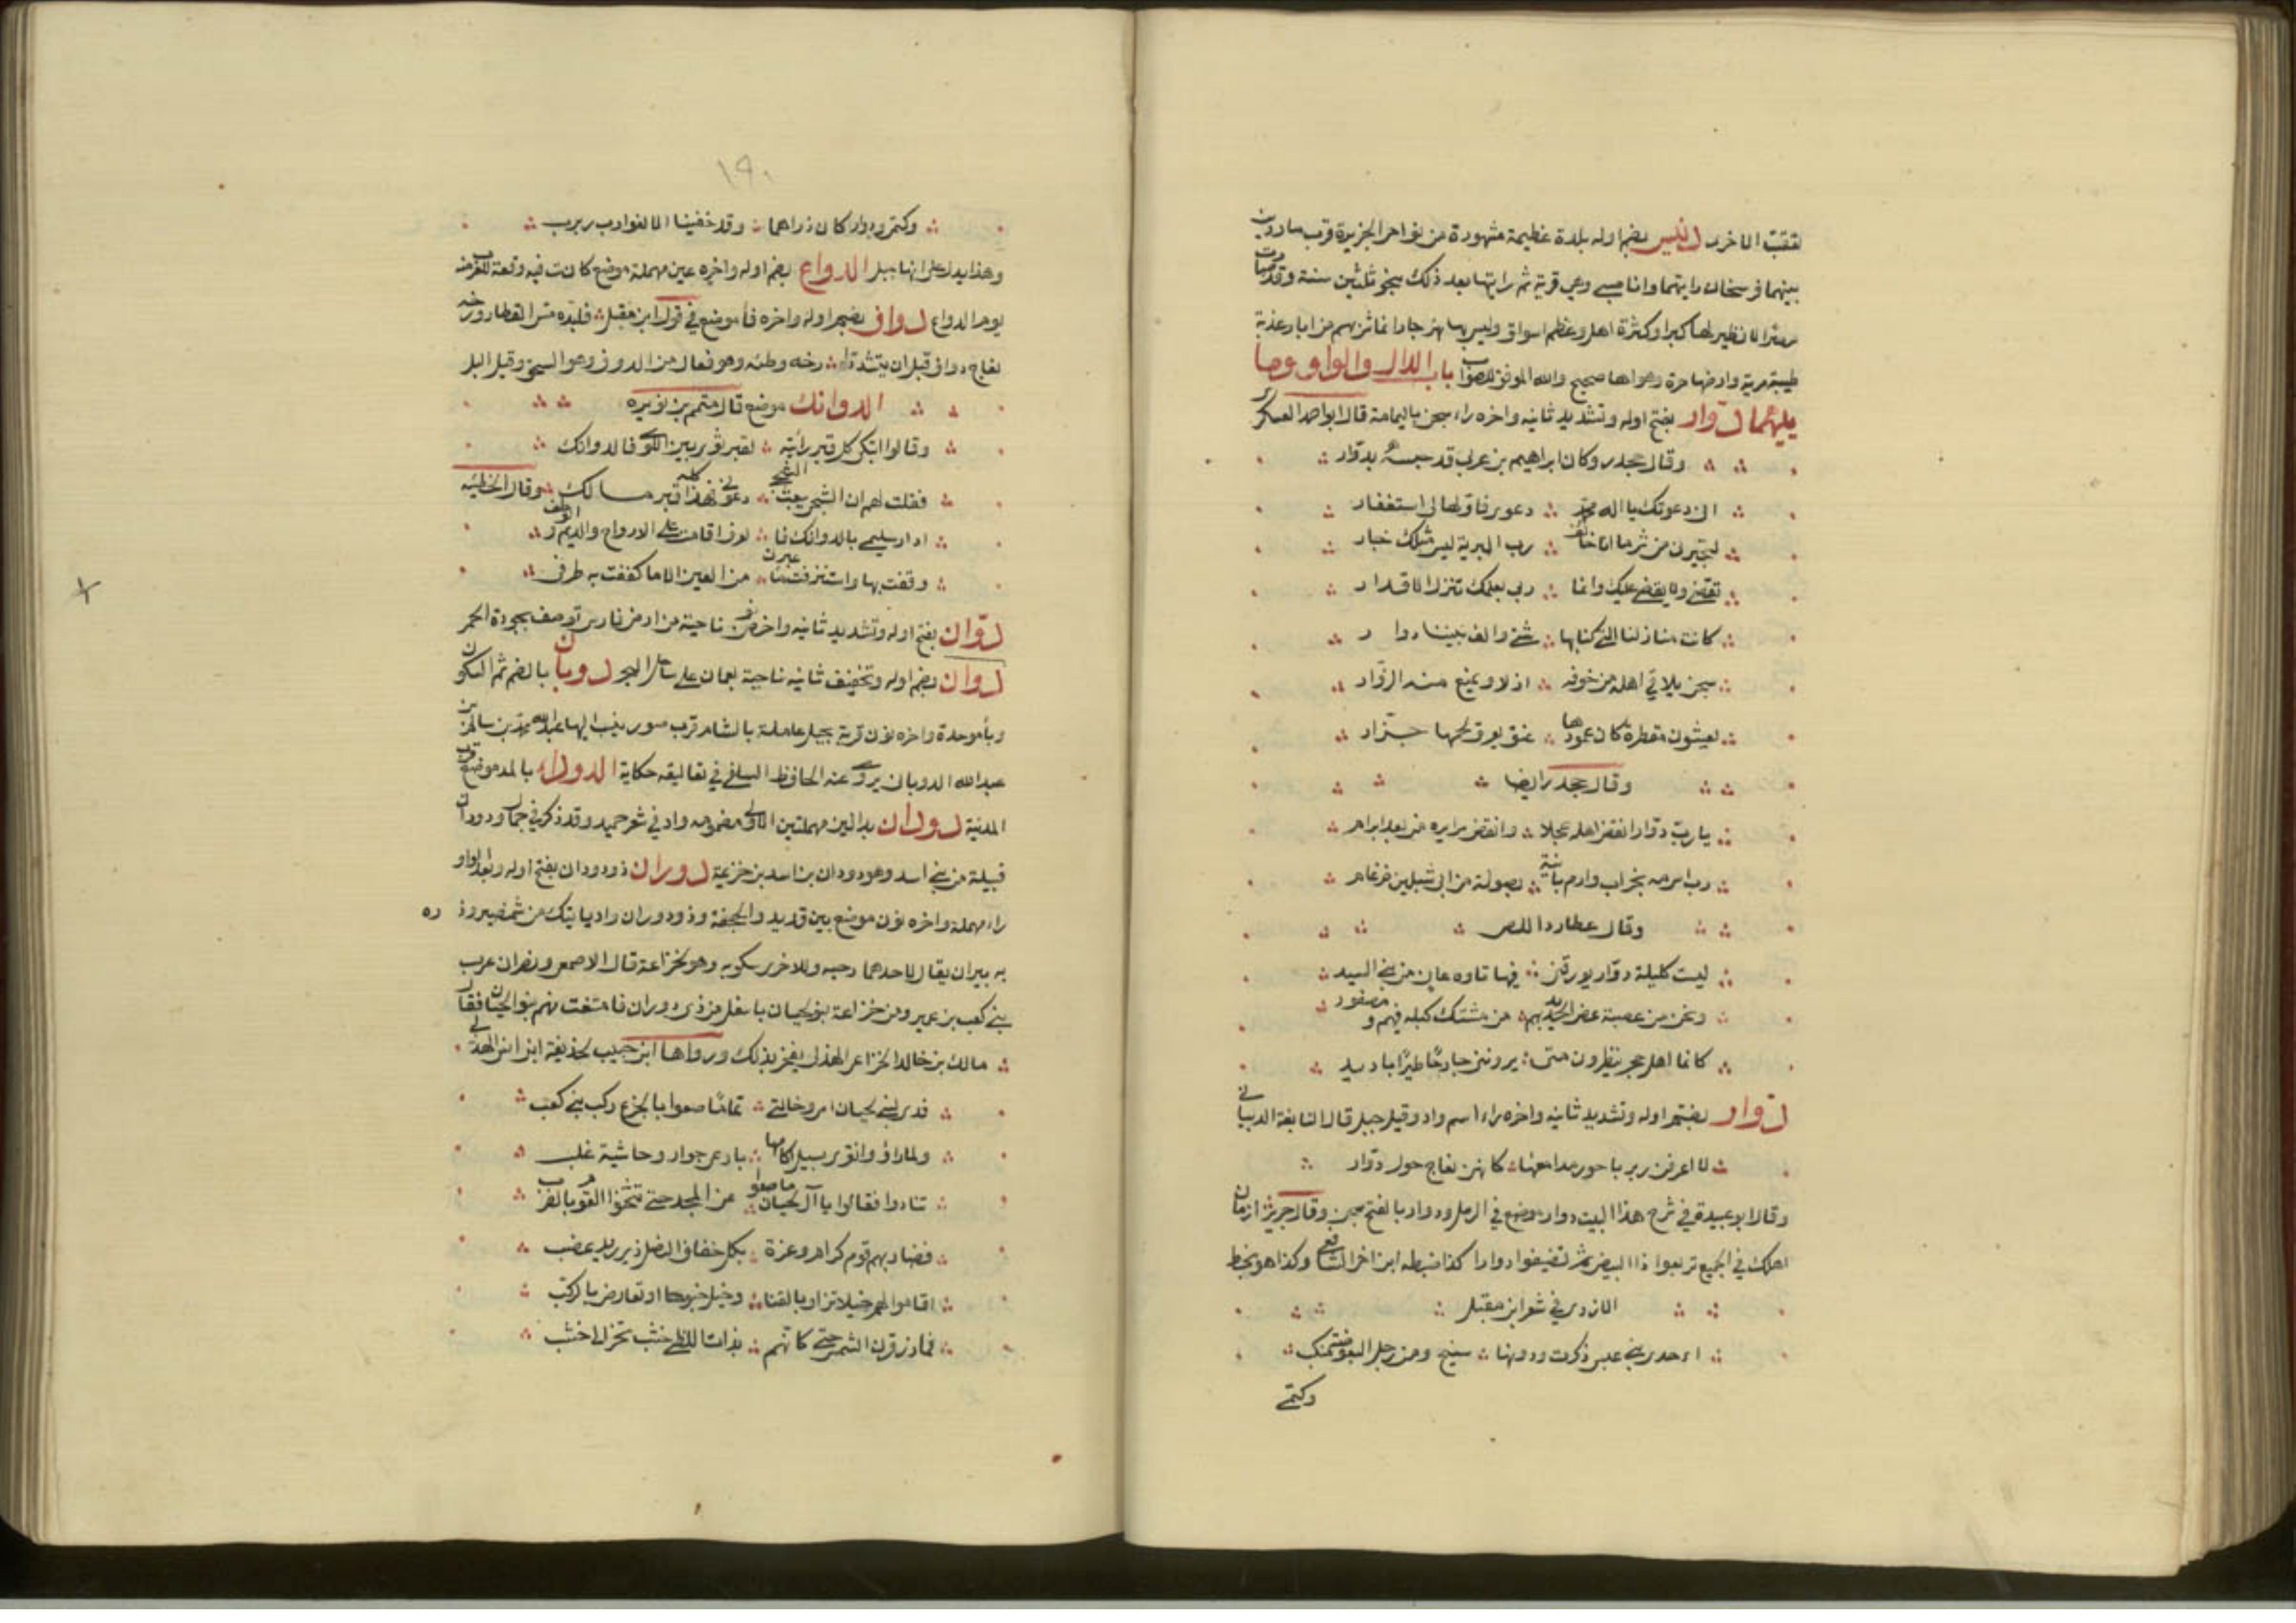 لقبت الاخرى دنيسر بضم اوله بلدة عظيمة مشهورة من نواحى الجزيرة قرب ماردين
بينهما فرسخان رايتها وانا صبى وهى قرية ثم رايتها بعد ذلك بنحو ثلثين سنة وقد صارت
مصرا لا نظير لها كبرا وكثرة اهل وعظم اسواق وليس بها نهر جار انما شربهم من ابار عذبة
طيبة مرية وارضها حرة وهواها صحيح والله الموفق للصواب باب الدال والواو وما
يليهما دوار بفتح اوله وتشديد ثانيه واخره راء سجن باليمامة قال ابو احمد العسكرى
وقال جحدر وكان ابراهيم بن عربى قد حبسه بدوار
انى دعوتك يا اله محمد دعوى فاولها لى استغفار
لتجيرنى من شر ما انا خائف رب البرية ليس مثلك جار
تقضى ولا يقضى عليك وانما ربى بعلمك تنزل الاقدار
كانت منازلنا التى كنا بها شتى والف بيننا دوار
سجن يلاقى اهله من خوفه ازلا ويمنع منه الزوار
يغشون مقطرة كان عمودها عنق يعرق لحمها جزار
وقال جحدر ايضا
يا رب دوار انقذ اهله عجلا وانقض مرايره من بعد ابرام
رب ارمه بخراب وارم بانيه بصولة من ابى شبلين ضرغام
وقال عطارد اللص
ليست كليلة دوار يورقنى فيها تاوه عان من بنى السيد
ونحن من عصبة عض الحديد بهم من مشتك كبله فيهم ومصفود
كانما اهل حجر ينظرون متى يروننى خارجا طيرا باديد
دوار بضم اوله وتشديد ثانيه واخره راء اسم واد وقيل جبل قال النابغة الذبيانى
لا اعرفن ربربا حورا مدامعها كانهن نعاج حول دوار
وقال ابو عبيدة فى شرح هذا البيت دوار موضع فى الرمل ودوار بالفتح سجن وقال جرير ازمان
اهلك فى الجميع تربعوا ذا البيض ثم تصيفوا دوارا كذا ضبطه ابن اخى الشافعى وكذا هو بخط
الازدى فى شعر ابن مقبل
ااحدى بنى عبس ذكرت ودونها سنيح ومن رمل البعوضة منكب
وكتمى
١٩٠
وكتمى ودوار كان ذراهما وقد خفيتا الا الغوارب ربرب
وهذا يدل على انها جبل الدواع بضم اوله واخره عين مهملة موضع كانت فيه وقعة للعرب منه
يوم الدواع دواف بضم اوله واخره فا موضع فى قول ابن مقبل فلبده مس القطار ورخه
نعاج دواف قبل ان يتشددا رخه وطئه وهو فعال من الدوف وهو السحق وقيل البل
الدوانك موضع قال متمم بن نويره
وقالوا اتبكى كل قبر رايته لقبر ثوى بين اللوى فالدوانك
فقلت لهم ان الشجى يبعث الشجى دعونى فهذا كله قبر مالك وقال الحطيئة
ادار سليمى بالدوانك فالعرف اقامت على الارواح والديم الوطف
وقفت بها واستنزفت ماء عبرتى من العين الا ما كففت به طرفى
دوان بفتح اوله وتشديد ثانيه واخره نون ناحية من ارض فارس توصف بجودة الخمر
دوان بضم اوله وتخفيف ثانيه ناحية بعمان على ساحل البحر دوبان بالضم ثم السكون
وبا موحدة واخره نون قرية بجبل عاملة بالشام قرب صور ينسب اليها عبد الله محمد بن سالم بن
عبد الله الدوبانى يروى عنه الحافظ السلفى فى تعاليقه حكاية الدوداء بالمد موضع قرب
المدينة دودان بدالين مهملتين الاولى مضمومه واد فى شعر حميد وقد ذكر فى جمال ودودان
قبيلة من بنى اسد وهو دودان بن اسد بن خزيمة دوران ذو دودان بفتح اوله وبعد الواو
راء مهملة واخره نون موضع بين قديد والجحفة وذو دوران واد ياتيك من شمنصير وذروه
به بيران يقال لاحدهما رحبه وللاخرى سكوبه وهو لخزاعة قال الاصمعى ونصران غزت
بنى كعب بن عمير ومن خزاعة بنو لحيان باسفل من ذى دوران فامتنعت منهم بنو لحيان فقال
مالك بن خالد الخزاعى الهذلى يفخر بذلك ورواها ابن حبيب لحذيفة ابن انس الهذلى
فدى لبنى لحيان امى وخالتى بما ماصعوا بالجزع ركب بنى كعب
ولما راوا نقرى تسيل اكامها بارعن جرار وحاشية غلب
تنادوا فقالوا يا آل لحيان ماصعوا عن المجد حتى تثخنوا القوم بالضرب
فضاربهم قوم كرام وعزة بكل خفاف النصل ذى ربد عضب
اقاموا لهم خيلا تزاور بالقنا وخيل جنوحا او تعارض بالركب
فما ذر قرن الشمس حتى كانهم بذات اللظى خشب تجر الى خشب